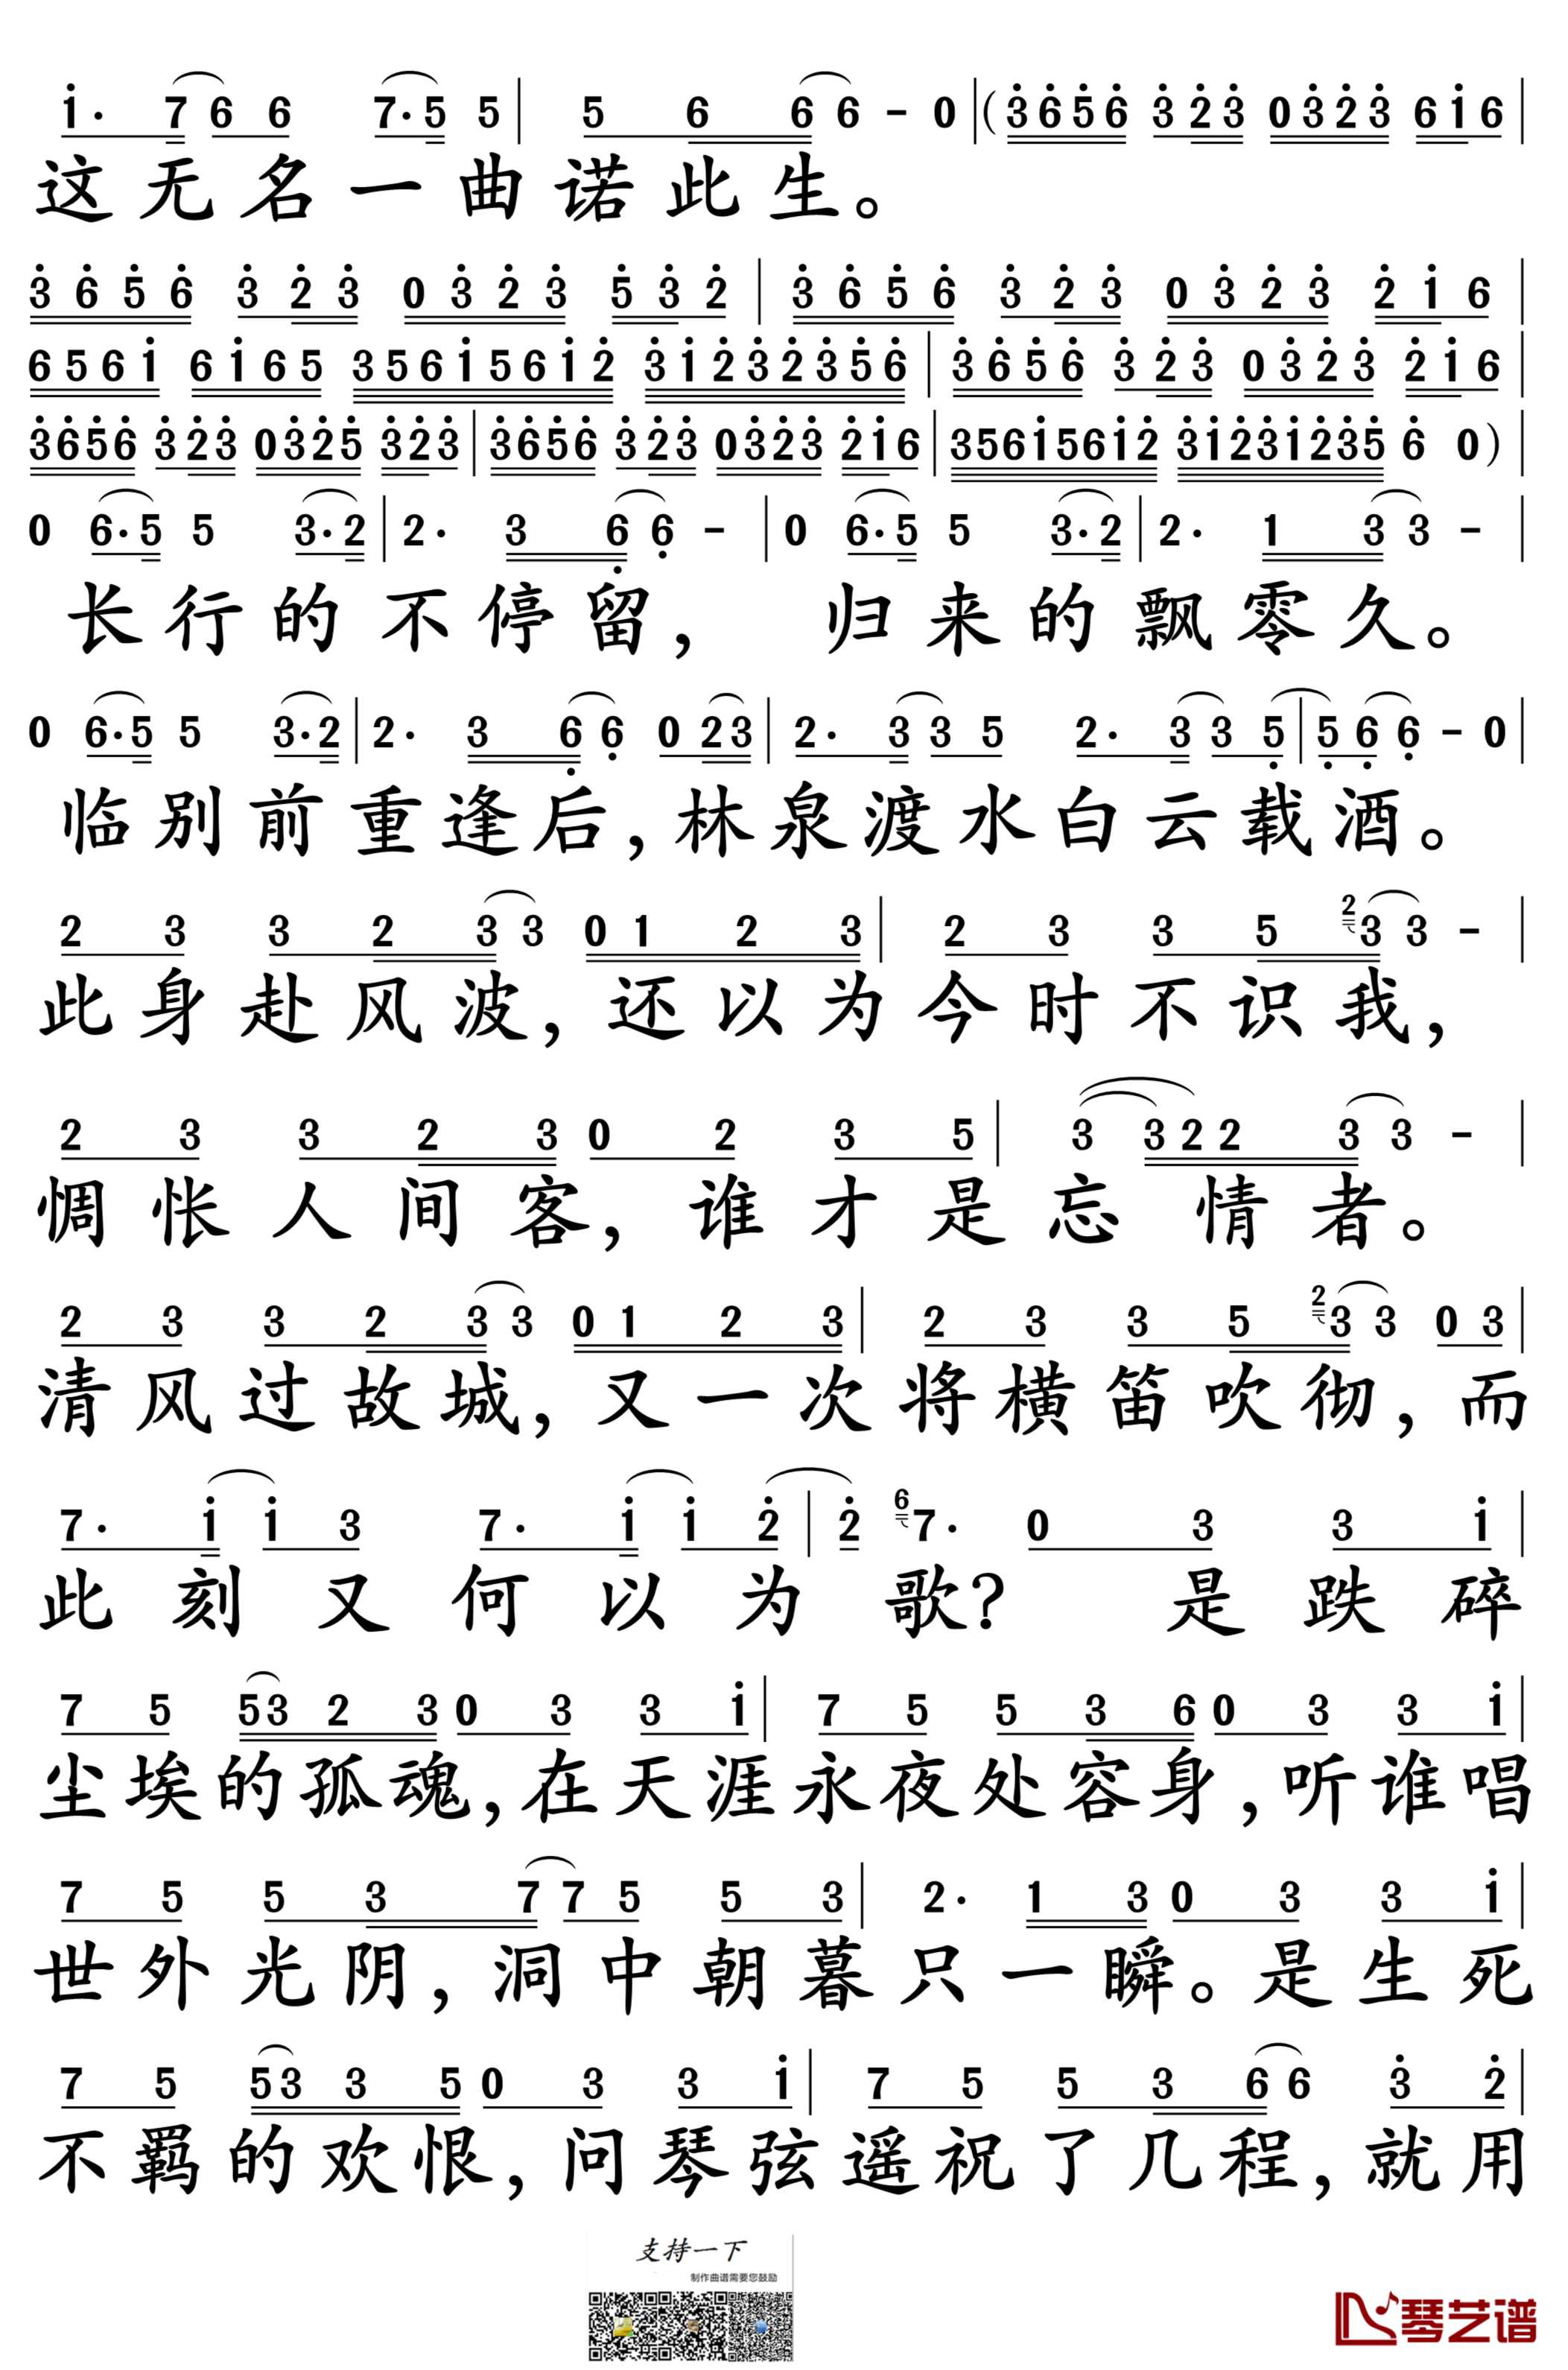 i· 7 6 6 7·5 5 | 5 6 6 6 - 0 |(3 6 5 6 3 2 3 0 3 2 3 6 i 6 |
这无名一曲诺此生。
3 6 5 6 3 2 3 0 3 2 3 5 3 2 | 3 6 5 6 3 2 3 0 3 2 3 2 i 6 |
6 5 6 i 6 i 6 5 3 5 6 i 5 6 i 2 3 i 2 3 2 3 5 6 | 3 6 5 6 3 2 3 0 3 2 3 2 i 6 |
3 6 5 6 3 2 3 0 3 2 5 3 2 3 | 3 6 5 6 3 2 3 0 3 2 3 2 i 6 | 3 5 6 i 5 6 i 2 3 i 2 3 i 2 3 5 6 0) |
0 6·5 5 3·2 | 2· 3 6 6 - | 0 6·5 5 3·2 | 2· 1 3 3 - |
长行的不停留，归来的飘零久。
0 6·5 5 3·2 | 2· 3 6 6 0 2 3 | 2· 3 3 5 2· 3 3 5 | 5 6 6 - 0 |
临别前重逢后，林泉渡水白云载酒。
2 3 3 2 3 3 0 1 2 3 | 2 3 3 5 2 3 3 - |
此身赴风波，还以为今时不识我，
2 3 3 2 3 0 2 3 5 | 3 3 2 2 3 3 - |
惆怅人间客，谁才是忘情者。
2 3 3 2 3 3 0 1 2 3 | 2 3 3 5 2 3 3 0 3 |
清风过故城，又一次将横笛吹彻，而
7· i i 3 7· i i 2 | 2 6 7· 0 3 3 i |
此刻又何以为歌？是跌碎
7 5 5 3 2 3 0 3 3 i | 7 5 5 3 6 0 3 3 i |
尘埃的孤魂，在天涯永夜处容身，听谁唱
7 5 5 3 7 7 5 5 3 | 2· 1 3 0 3 3 i |
世外光阴，洞中朝暮只一瞬。是生死
7 5 5 3 3 5 0 3 3 i | 7 5 5 3 6 6 3 2 |
不羁的欢恨，问琴弦遥祝了几程，就用
支持一下
制作曲谱需要您鼓励
琴艺谱